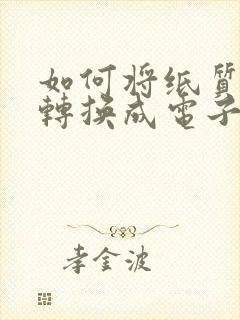 如何将纸質
轉换成電子
李金波